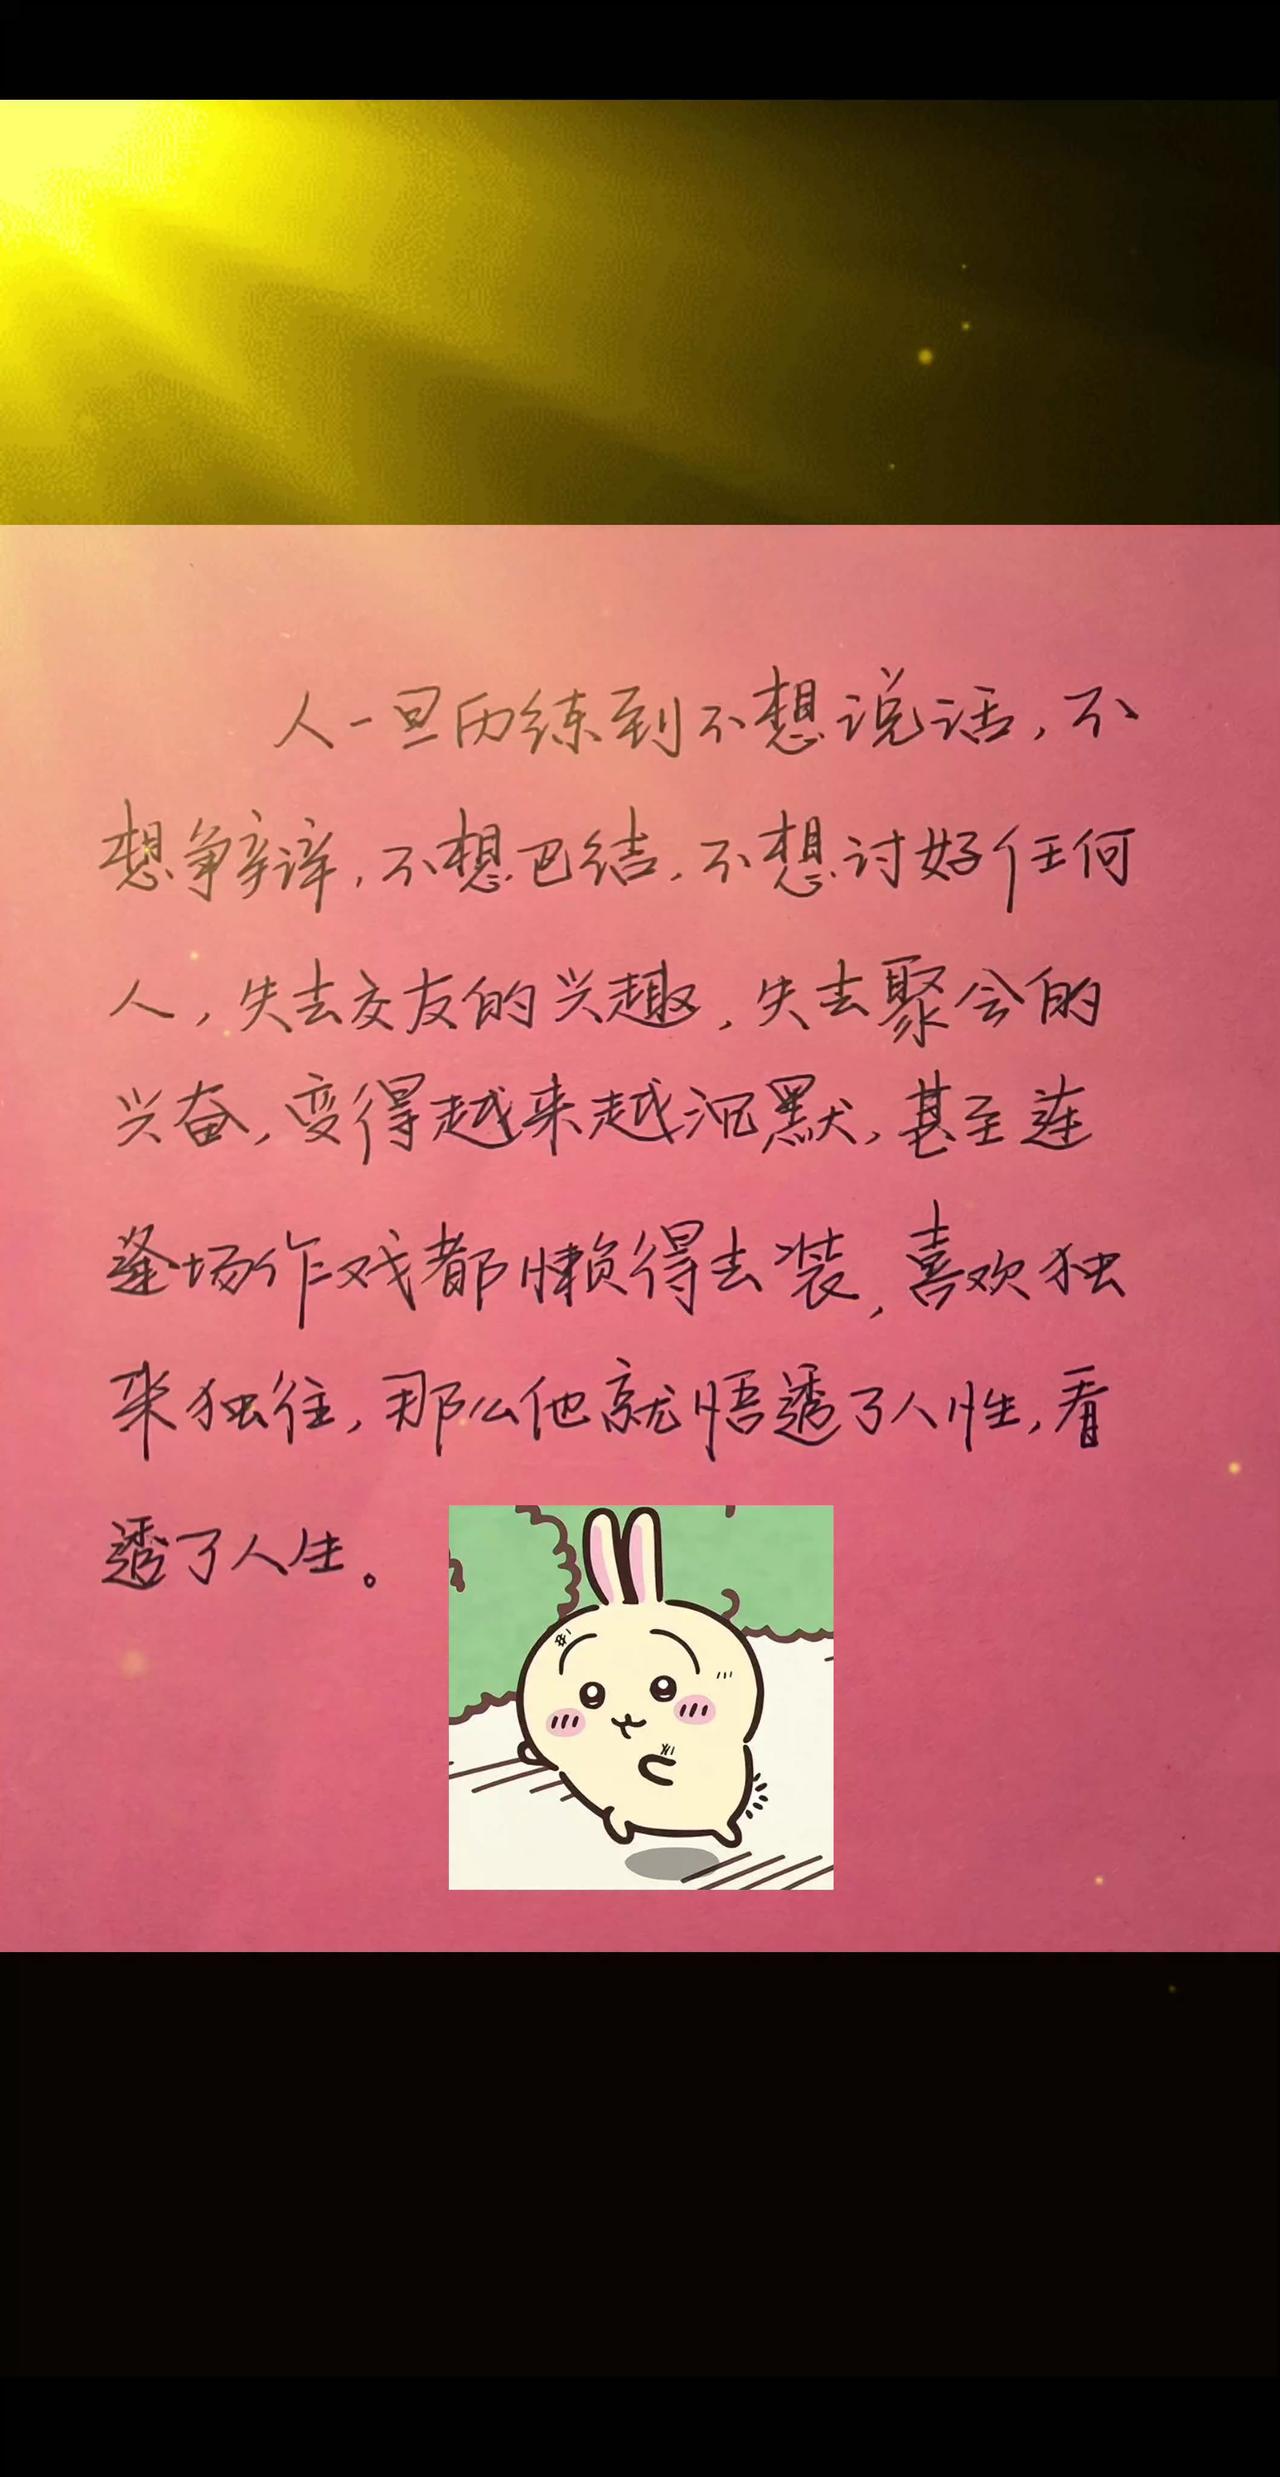 人一旦历练到不想说话，不
想争辩，不想巴结，不想讨好任何
人，失去交友的兴趣，失去聚会的
兴奋，变得越来越沉默，甚至连
逢场作戏都懒得去装，喜欢独
来独往，那么他就悟透了人性，看
透了人生。